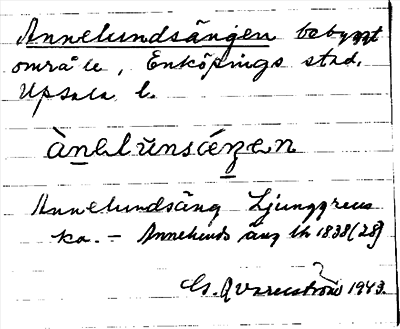 Annelundsängen bebyggt
område, Enköpings stad,
Upsala l.
ànelŭnsáŋen
Annelundsäng Ljunggrens
ka. – Annelunds äng lh 1838 (28)
G. Qvarnström 1943.